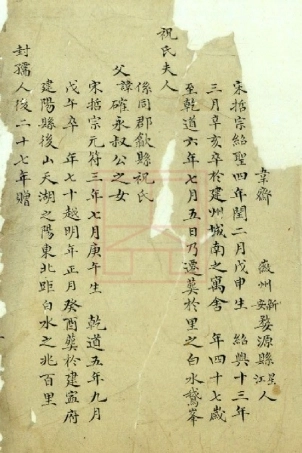 韋齋 徽州新安婺源縣星江人
宋哲宗紹聖四年閏二月戊申生 紹興十三年
三月辛亥卒於建州城南之寓舍 年四十七歲
至乾道六年七月五日乃遷葬於里之白水鵝峯
祝氏夫人
係同郡歙縣祝氏
父諱確永叔公之女
宋哲宗元符三年七月庚午生 乾道五年九月
戊午卒 年七十越明年正月癸酉葬於建寧府
建陽縣後山天湖之陽東北距白水之兆百里
封孺人後二十七年贈